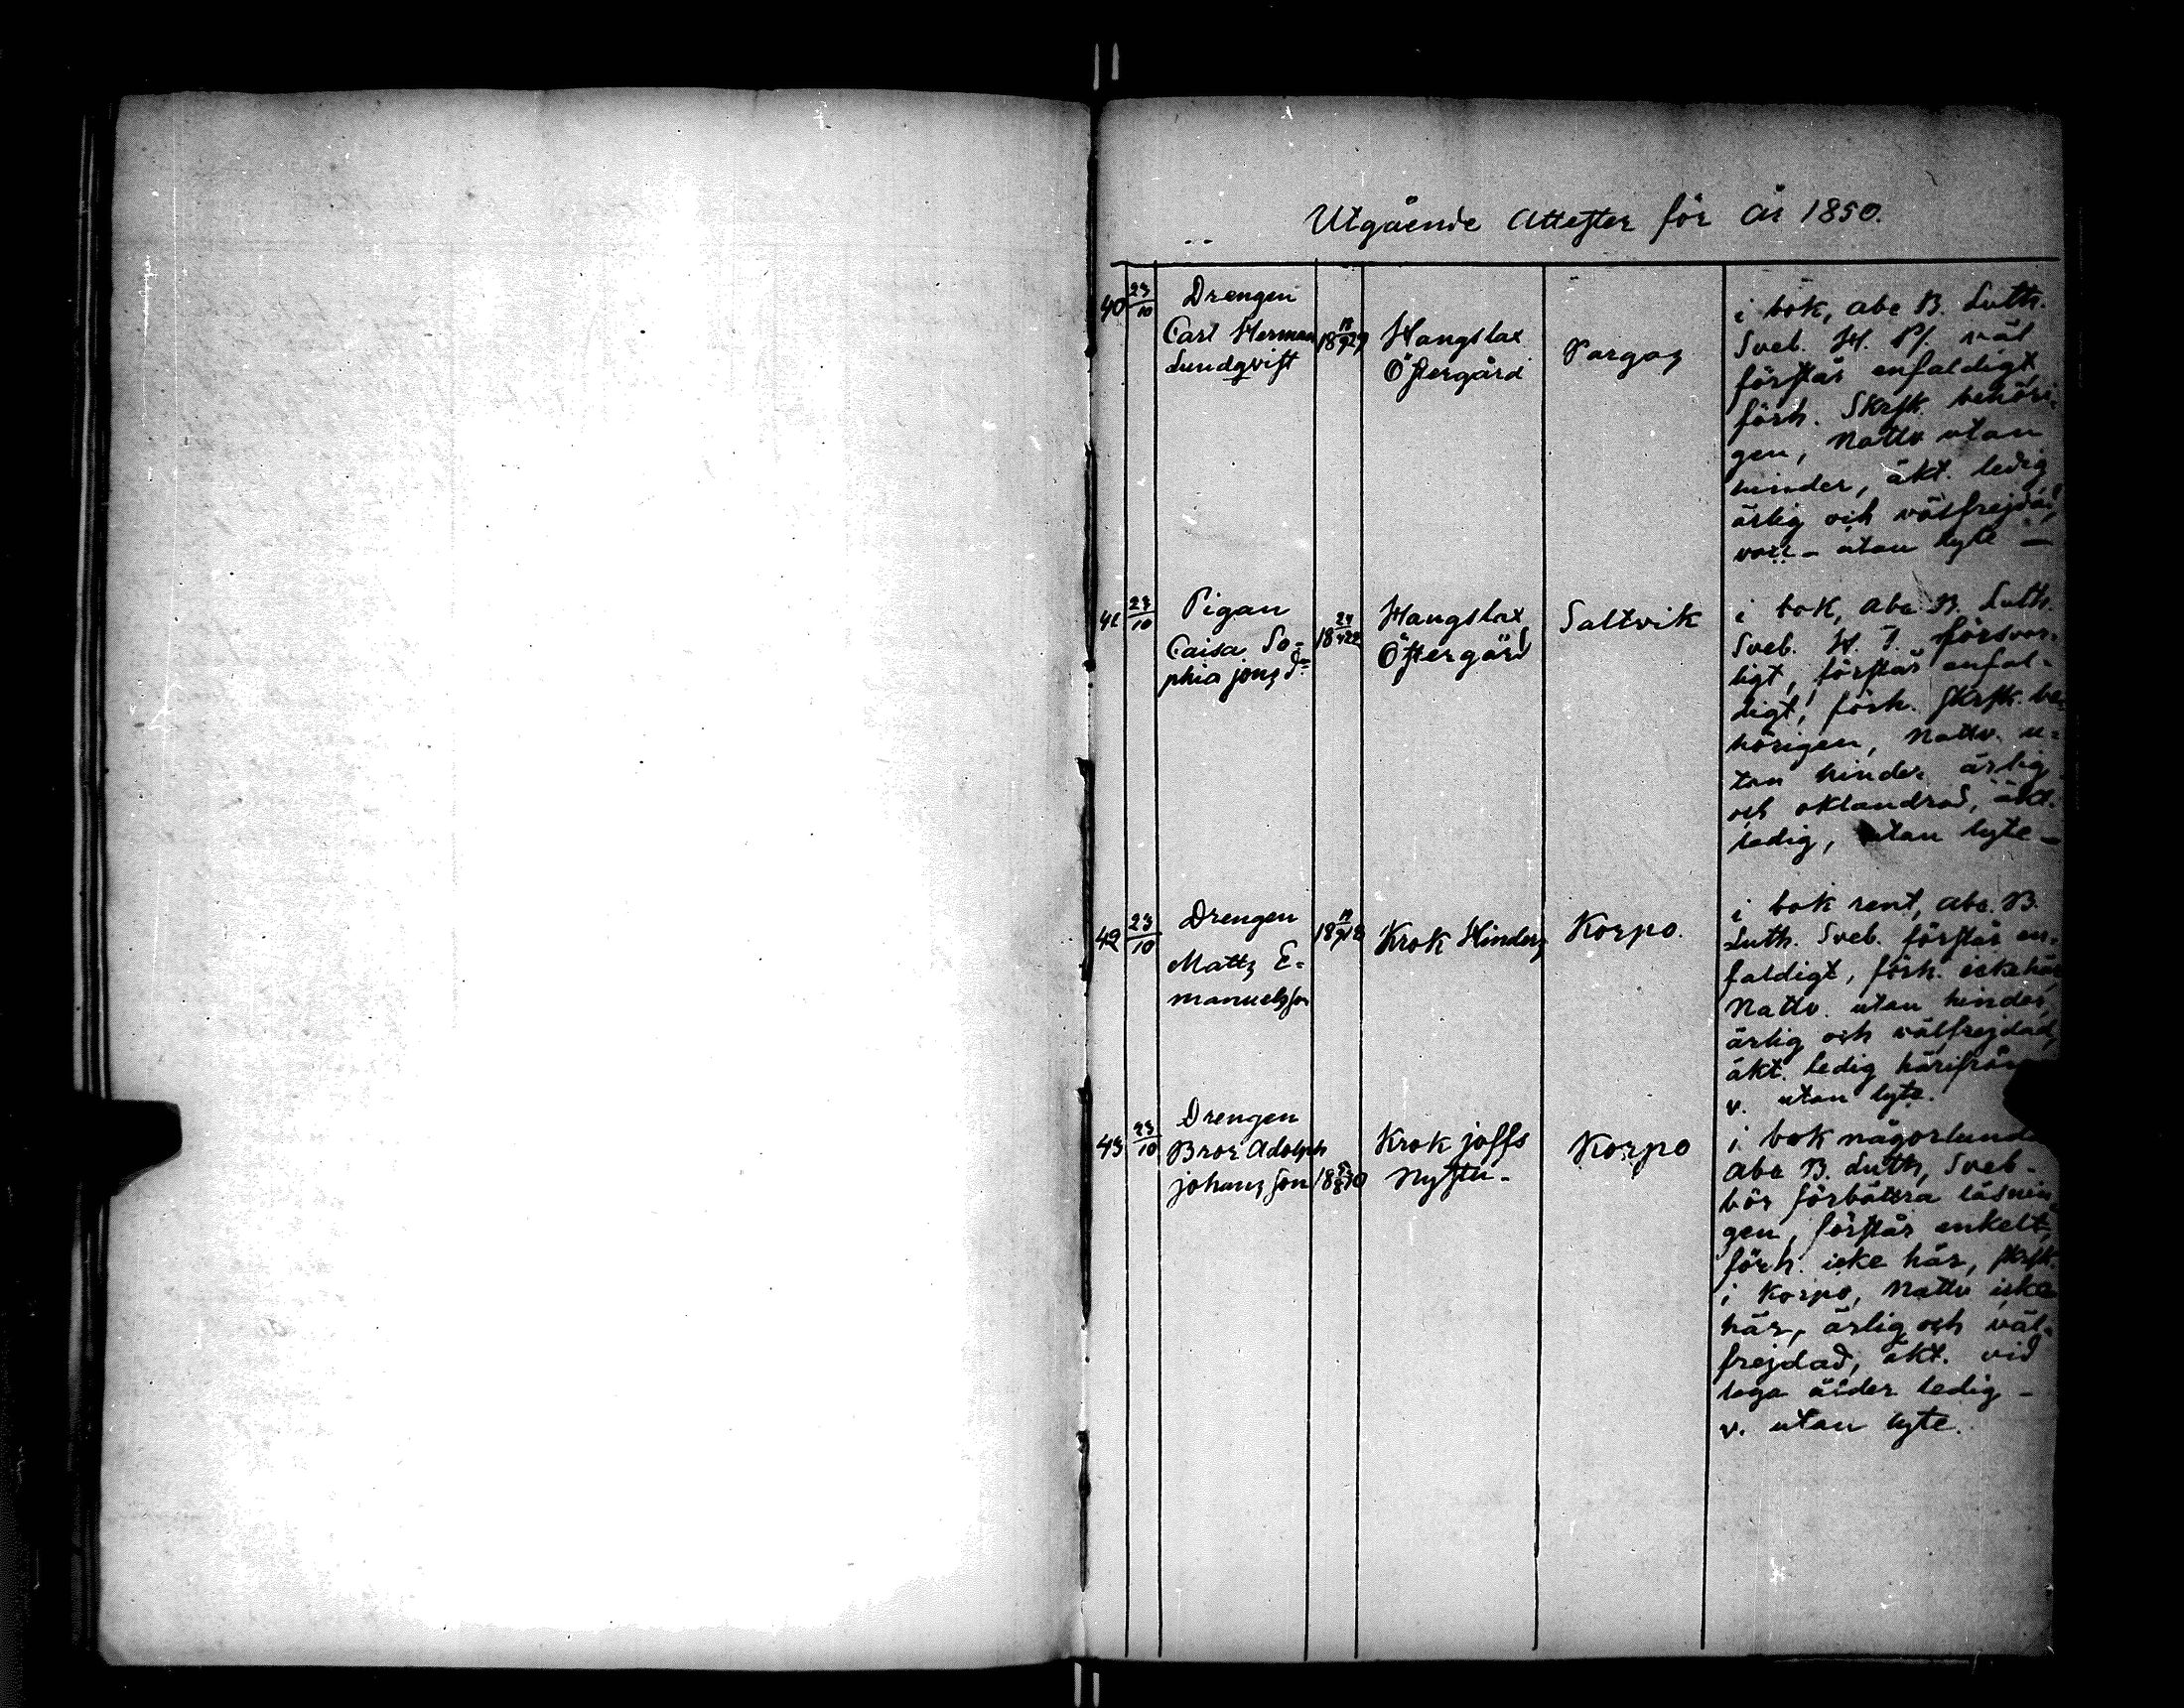 Utgående Attester för År 1850.
40 23/10 Drengen
Carl Herman
Lundqvist
Hangslax
Östergård
Pargas
i bok, abc B. Luth.
Sveb. H. väl
förstår enfaldigt
förh. Skrft. behöri-
gen, Nattv utan
hinder, äkt. ledig
ärlig och välfrejdad,
vacc - utan lyte -
41 23/10 Pigan
Caisa So-
phia jonsdr
Hangslax
Östergård
Saltvik
i bok, abc B. Luth.
Sveb. H. T. försvar-
ligt, förstår enfal-
digt, förh. skrft. be-
hörigen, Nattv. u-
tan hinder ärlig
och oklandrad, äkt.
ledig, utan lyte -
42 23/10 Drengen
Matts E-
manuelsson
Krok Hinders
Korpo.
i bok rent, abc. B.
Luth. Sveb. förstår en-
faldigt, förh. icke här
Nattv. utan hinder,
ärlig och välfrejdad,
äkt. ledig härifrån
v. utan lyte.
43 23/10 Drengen
Bror Adolph
johansson
Krok joffs
Korpo
i bok någorlunda
abc B. Luth, Sveb-
bör förbättra läsnin
gen, förstår enkelt,
förh. icke här, skrft.
i Korpo, Nattv icke
här, ärlig och väl-
frejdad, äkt. vid
laga ålder ledig -
v. utan lyte.